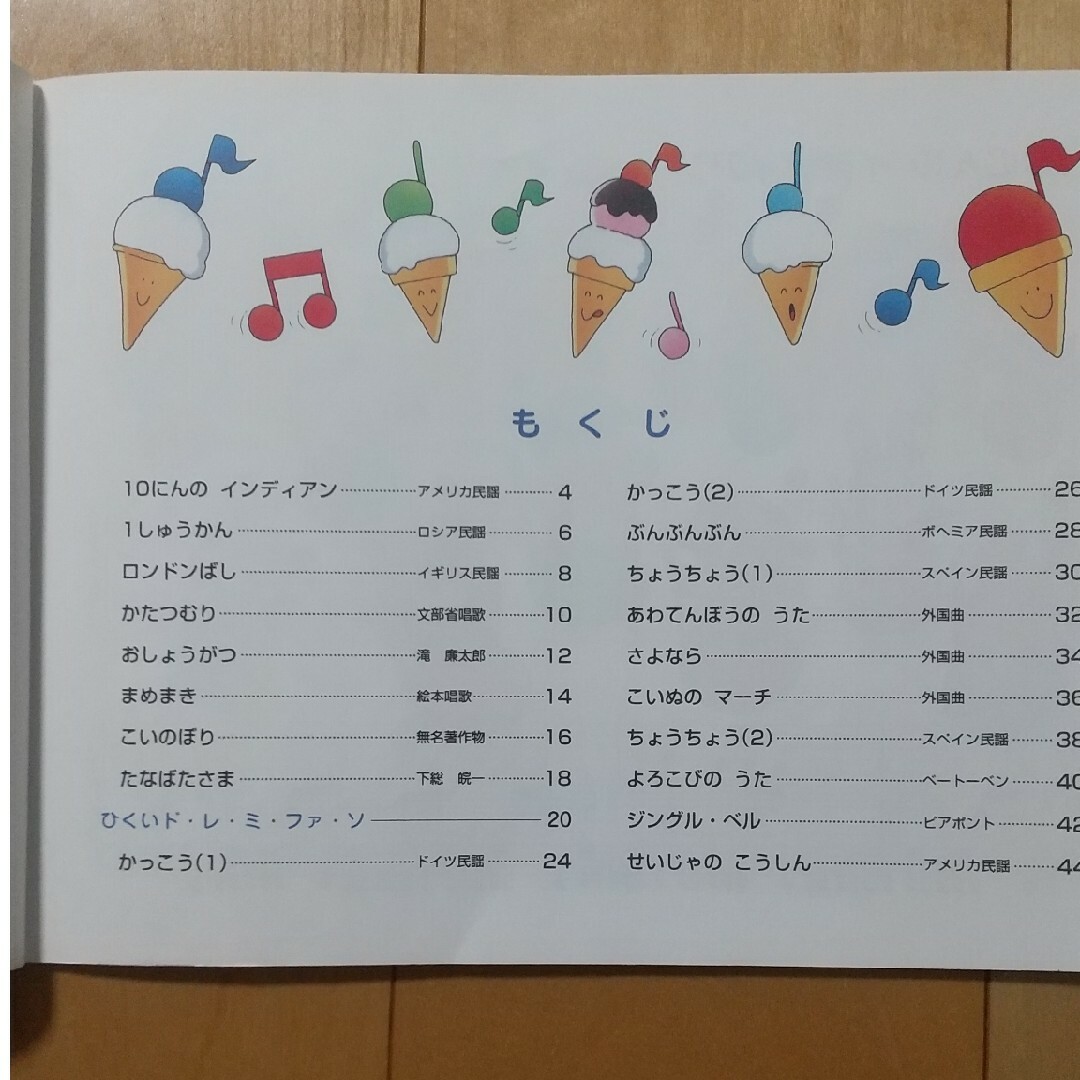 もくじ
10にんの インディアン……………アメリカ民謡………4
1しゅうかん……………ロシア民謡………6
ロンドンばし……………イギリス民謡………8
かたつむり……………文部省唱歌………10
おしょうがつ……………滝 廉太郎………12
まめまき……………絵本唱歌………14
こいのぼり……………無名著作物………16
たなばたさま……………下総 皖一………18
ひくいド・レ・ミ・ファ・ソ――――20
かっこう(1)……………ドイツ民謡………24
かっこう(2)……………ドイツ民謡………26
ぶんぶんぶん……………ボヘミア民謡………28
ちょうちょう(1)……………スペイン民謡………30
あわてんぼうの うた……………外国曲………32
さよなら……………外国曲………34
こいぬの マーチ……………外国曲………36
ちょうちょう(2)……………スペイン民謡………38
よろこびの うた……………ベートーベン………40
ジングル・ベル……………ピアポント………42
せいじゃの こうしん……………アメリカ民謡………44